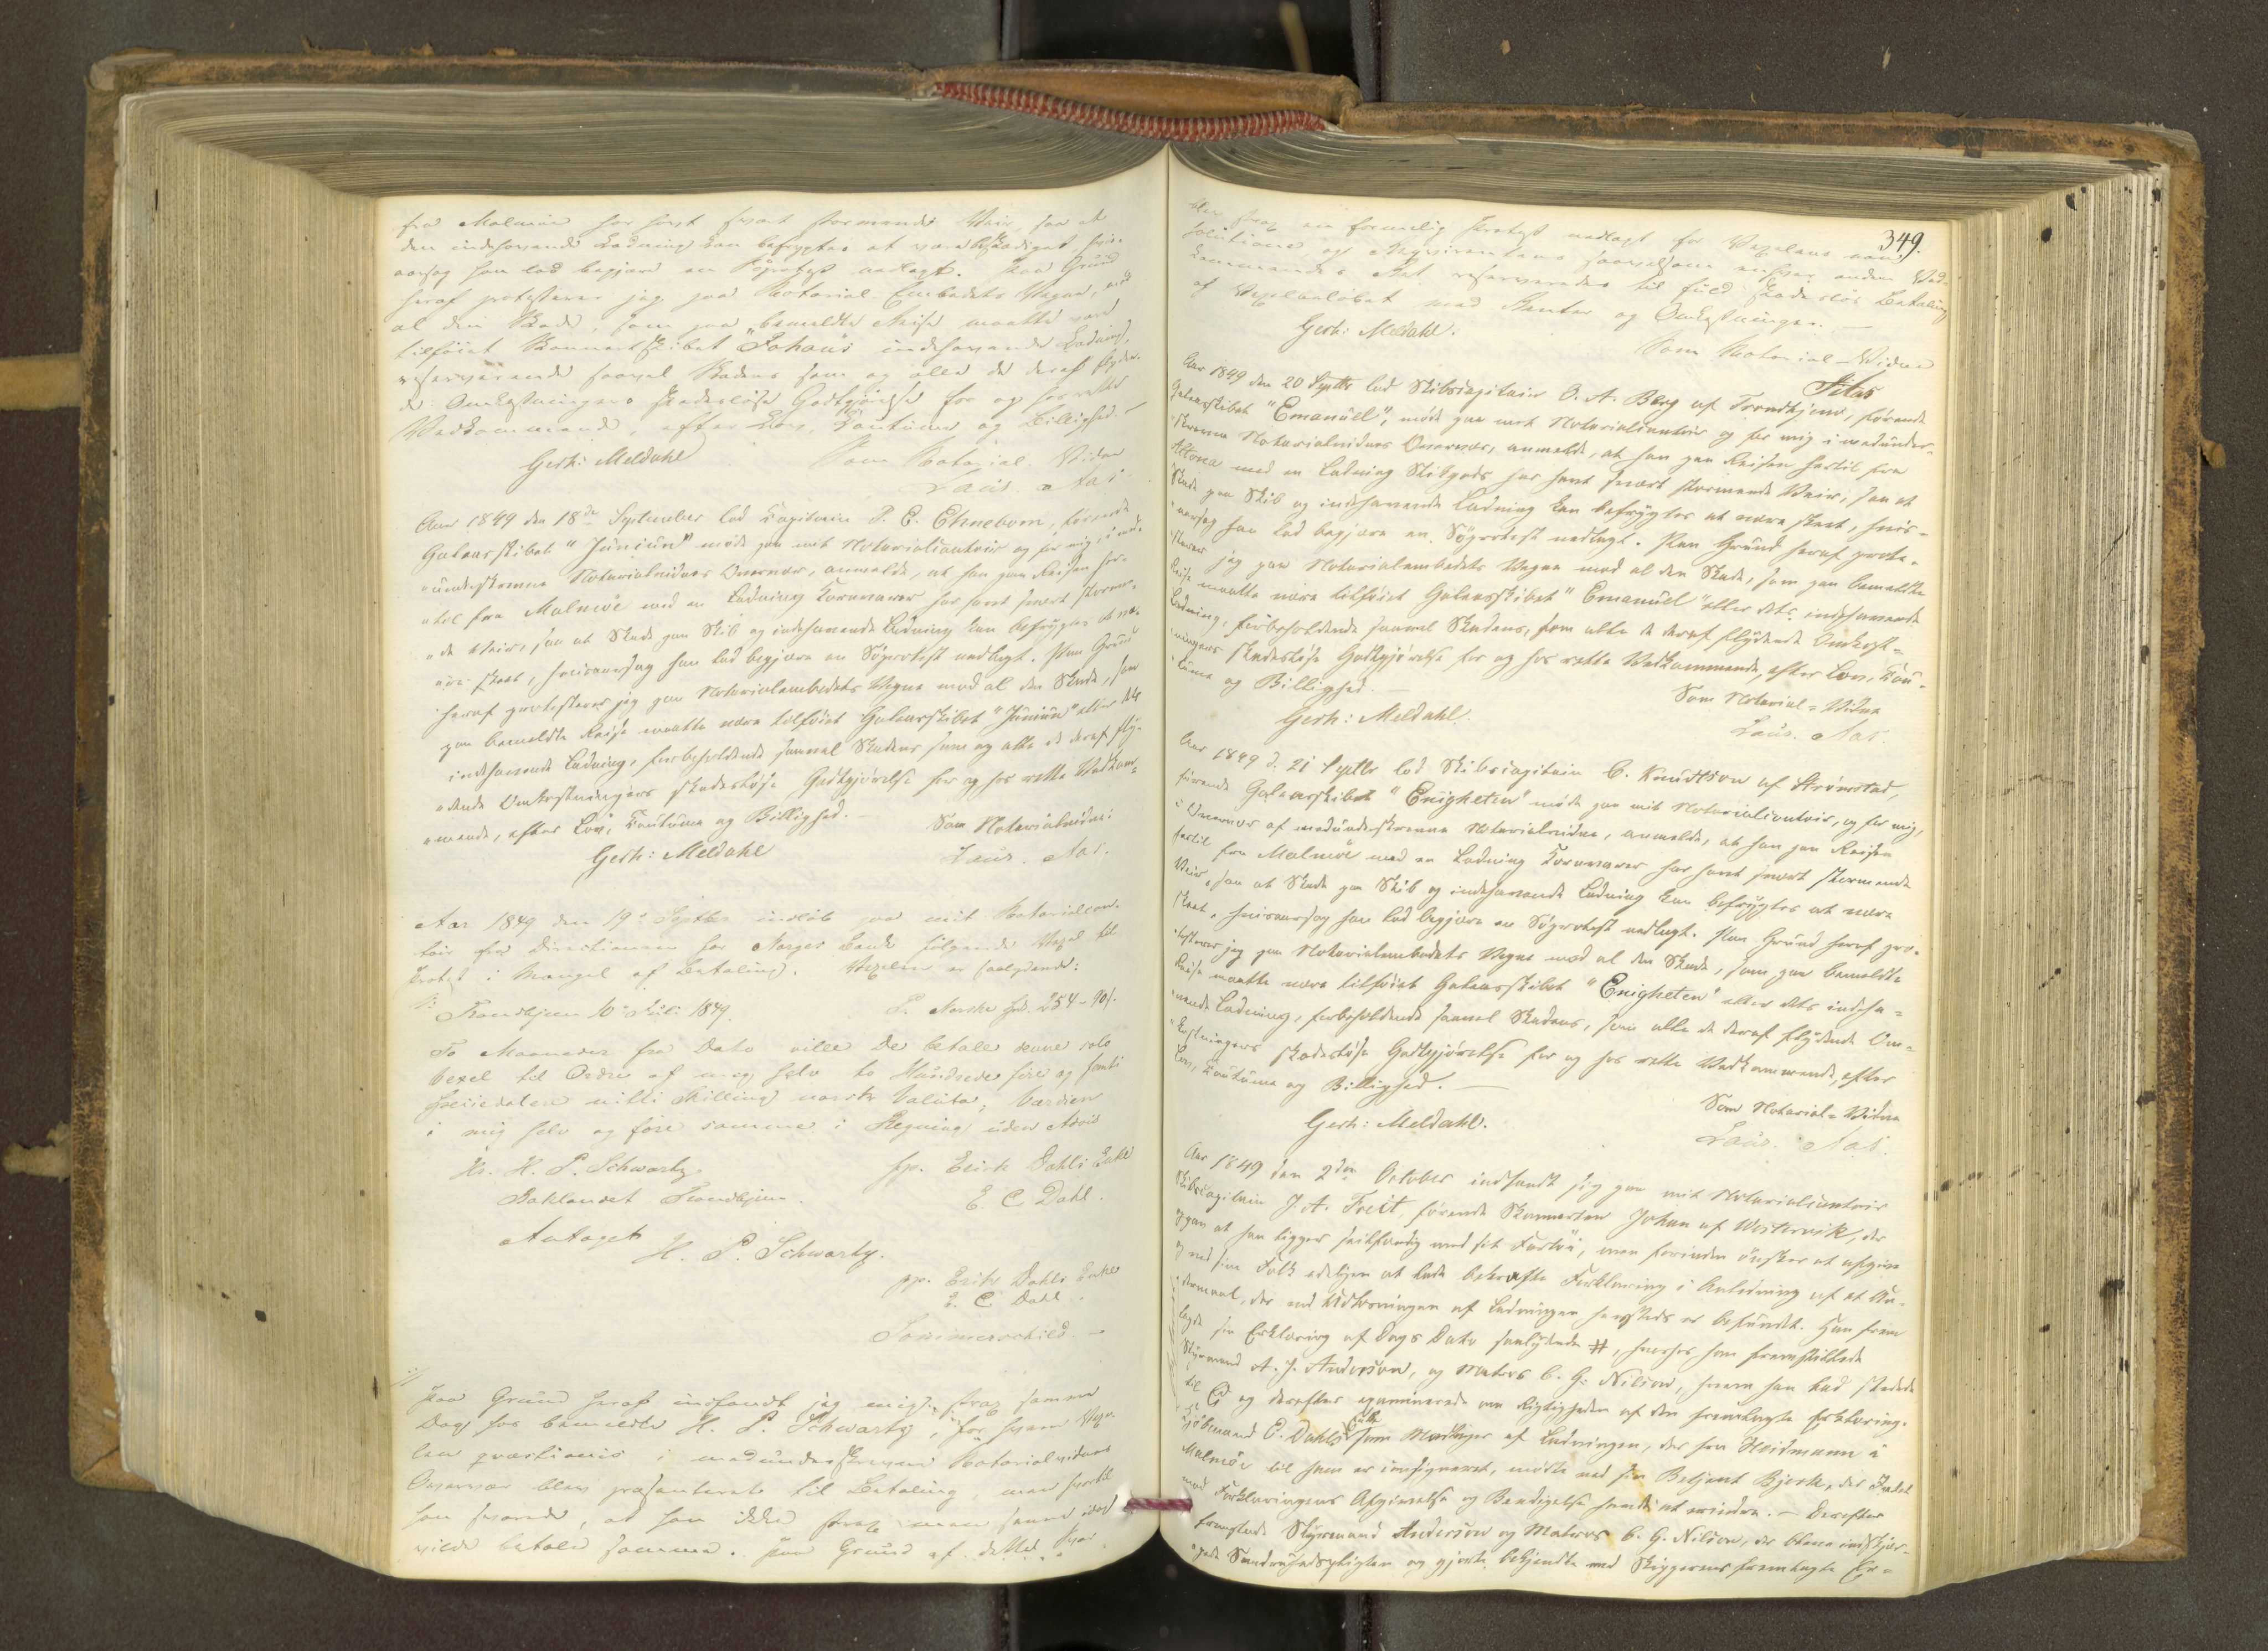 fra Malmøe har havt svært stormende Veir, saa at
den indehavende Ladning kan befrygtes at være beskadiget, hvis-
aarsag han lod begjære en Søprotest nedlagt. Paa Grund
heraf protesterer jeg paa Notarial-Embedets Vegne, mod
al den Skade, som paa bemeldte Reise maatte være
tilføiet Skonnertskibet "Johan's indehavende Ladning,
reserverende saavel Skadens som og alle de deraf flyden-
de Omkostningers skadesløse Godtgjørelse for og hos rette
Vedkommende, efter Lov, Coutume og Billighed.
Gerh: Meldahl
Som Notarial-Vidne
Laur. Aas.
Aar 1849 den 18de September lod Capitain P. C. Ehnebom, førende
Galeasskibet "Junium" møde paa mit Notarialcontoir og for mig, i med-
underskrevne Notarialvidnes Overvær, anmelde, at han paa Reisen her-
til fra Malmøe med en Ladning Kornvarer har havt svært stormen-
de Veir, saa at Skade paa Skib og indehavende Ladning kan befrygtes at væ-
re skeet, hvisaarsag han lod begjære en Søprotest nedlagt. Paa Grund
heraf protesterer jeg paa Notarialembedets Vegne mod al den Skade, som
paa bemeldte Reise maatte være tilføiet Galeasskibet "Junium" eller dets
indehavende Ladning, forbeholdende saavel Skadens som og alle de deraf fly-
dende Omkostningers skadesløse Godtgjørelse for og hos rette Vedkom-
mende, efter Lov, Coutume og Billighed. -
Gerh: Meldahl
Som Notarialvidne:
Laur. Aas.
Aar 1849 den 19de Septbr indløb paa mit Notarialcon-
toir fra Directionen for Norges Bank følgende Vexel til
Protest i Mangel af Betaling. Vexelen er saalydende:
Trondhjem 10de Juli 1849. P. Norske Spd. 254-90/.
To Maaneder fra Dato ville De betale denne sola
Vexel til Ordre af mig selv to Hundrede fire og femti
Speciedaler nitti Skilling norsk Valuta, Værdien
i mig selv og føre samme i Regning uden Avis
Hr. H. P. Schwartz. pp. Erich Dahls Enke
Baklandet Trondhjem. E. C. Dahl.
Antaget H. P. Schwartz.
pp. Erik Dahls Enke
E. C. Dahl.
Sommerschild. -
Paa Grund heraf indfandt jeg mig strax samme
Dag hos bemeldte H. P. Schwartz, for hvem Vexe-
len quæstionis i medunderskrevne Notarialvidnes
Overvær blev præsenteret til Betaling men hvortil
han svarede, at han ikke strax men senere idag
vilde betale samme. Paa Grund af dette Svar
349.
blev strax en formelig Protest nedlagt for Vexelens non
solutione, og Reqvirentens saavelsom enhver anden Ved-
kommendes Ret reserveredes til fuld skadesløs Betaling
af Vexelbeløbet med Renter og Omkostninger. -
Gerh: Meldahl.
Som Notarial-Vidne
Aas
Aar 1849 den 20 Septbr lod Skibscapitain O. A. Berg af Trondhjem, førende
Galeasskibet "Emanuel", møde paa mit Notarialcontoir og for mig i medunder-
skrevne Notarialvidnes Overvær, anmelde, at han paa Reisen hertil fra
Altona med en Ladning Stikgods har havt svært stormende Veir, saa at
Skade paa Skib og indehavende Ladning kan befrygtes at være skeet, hvis-
aarsag han lod begjære en Søprotest nedlagt. Paa Grund heraf prote-
sterer jeg paa Notarialembedets Vegne mod al den Skade, som paa bemeldte
Reise maatte være tilføiet Galeasskibet "Emanuel" eller dets indehavende
Ladning, forbeholdende saavel Skadens, som alle de deraf flydende Omkost-
ningers skadesløse Godtgjørelse for og hos rette Vedkommende, efter Lov, Cou-
tume og Billighed. -
Gerh: Meldahl.
Som Notarial-Vidne
Laur. Aas.
Aar 1849 d. 21 Septbr lod Skibscapitain C. Knudtson af Strømstad,
førende Galeasskibet "Enigheten" møde paa mit Notarialcontoir, og for mig,
i Overvær af medunderskrevne Notarialvidne, anmelde, at han paa Reisen
hertil fra Malmøe med en Ladning Kornvarer har havt svært stormende
Veir, saa at Skade paa Skib og indehavende Ladning kan befrygtes at være
skeet, hvisaarsag han lod begjære en Søprotest nedlagt. Paa Grund heraf pro-
testerer jeg paa Notarialembedets Vegne mod al den Skade, som paa bemeldte
Reise maatte være tilføiet Galeasskibet "Enigheten" eller dets indeha-
vende Ladning, forbeholdende saavel Skadens, som alle de deraf flydende Om-
kostningers skadesløse Godtgjørelse for og hos rette Vedkommende, efter
Lov, Coutume og Billighed. -
Gerh: Meldahl.
Som Notarial-Vidne
Laur. Aas.
Aar 1849 den 2den October indfandt sig paa mit Notarialcontoir
Skibscapitain J. A. Freit, førende Skonnerten Johan af Westervik, der
opgav at han ligger seilfærdig med sit Fartøi, men forinden ønsker at afgive
og med sine Folk edeligen at lade bekræfte Forklaring i Anledning af et An-
kermaal, der ved Udlosningen af Ladningen hersteds er befundet. Han frem
lagde sin Erklæring af Dags Dato saalydende #, hvorhos han fremstillede
Styrmand A. J. Anderson, og Matros C. G. Nilson, hvem han bad stedede
til Ed og derefter examinerede om Rigtigheden af den fremlagte Erklæring.
For Kjøbmand E. Dahls Enke som Modtager af Ladningen, der fra Heidmann i
Malmøe til ham er consigneret, mødte ved sin Betjent Bjerk, der Intet
mod Forklaringens Afgivelse og Beedigelse havde at erindre. - Derefter
fremstode Styrmand Anderson og Matros C. G. Nilson, der bleve indskjær-
pede Sandhedspligten og gjorte bekjendte med Skipperens fremlagte Er-